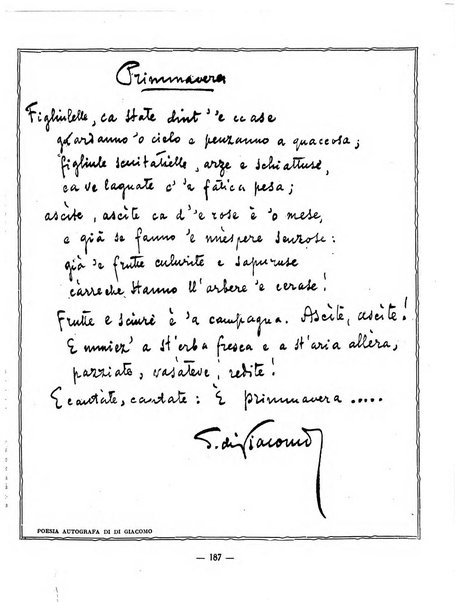 Primmavera
Figliulelle, ca state dint' 'e ccase
guardanno 'o cielo e penzanno a quaccosa;
figliule scuitatielle, arze e schiattuse,
ca ve lagnate c' 'a fatica pesa;
ascite, ascite ca d' 'e rose è 'o mese,
e già se fanno 'e nnéspere senzose:
già 'e frutte culurite e sapuruse
càrreche stanno ll'arbere 'e cerase!
Frutte e sciure è 'a campagna. Ascìte, ascite!
E mmiez' a st'erba fresca e a st'aria allèra,
pazziate, vasateve, redite!
E cantàte, cantate: È primmavera .....
S. di Giacomo
POESIA AUTOGRAFA DI DI GIACOMO
— 187 —